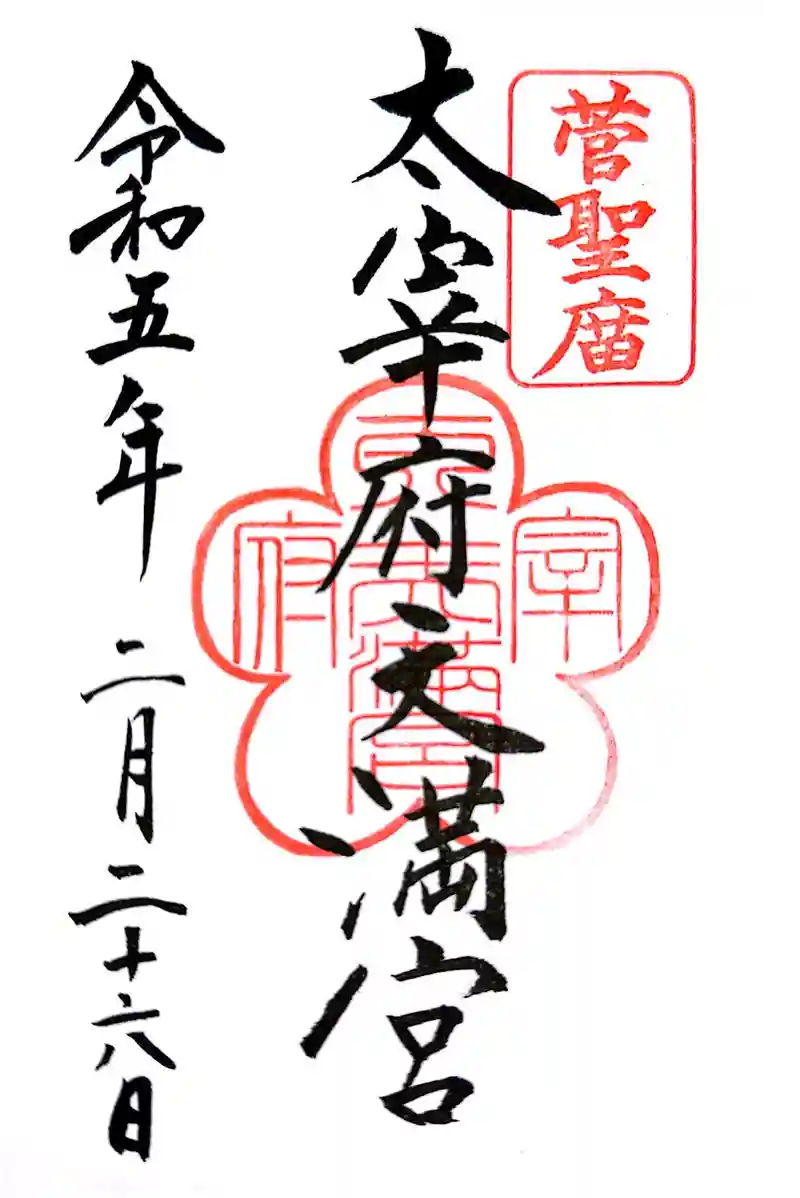 菅聖庿
太宰府天満宮
令和五年 二月二十六日
宰
府
天満宮